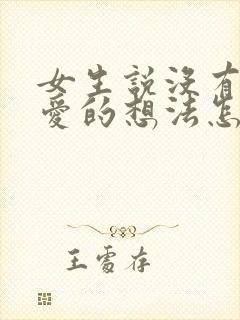 女生説沒有
愛的想法怎
王雪存